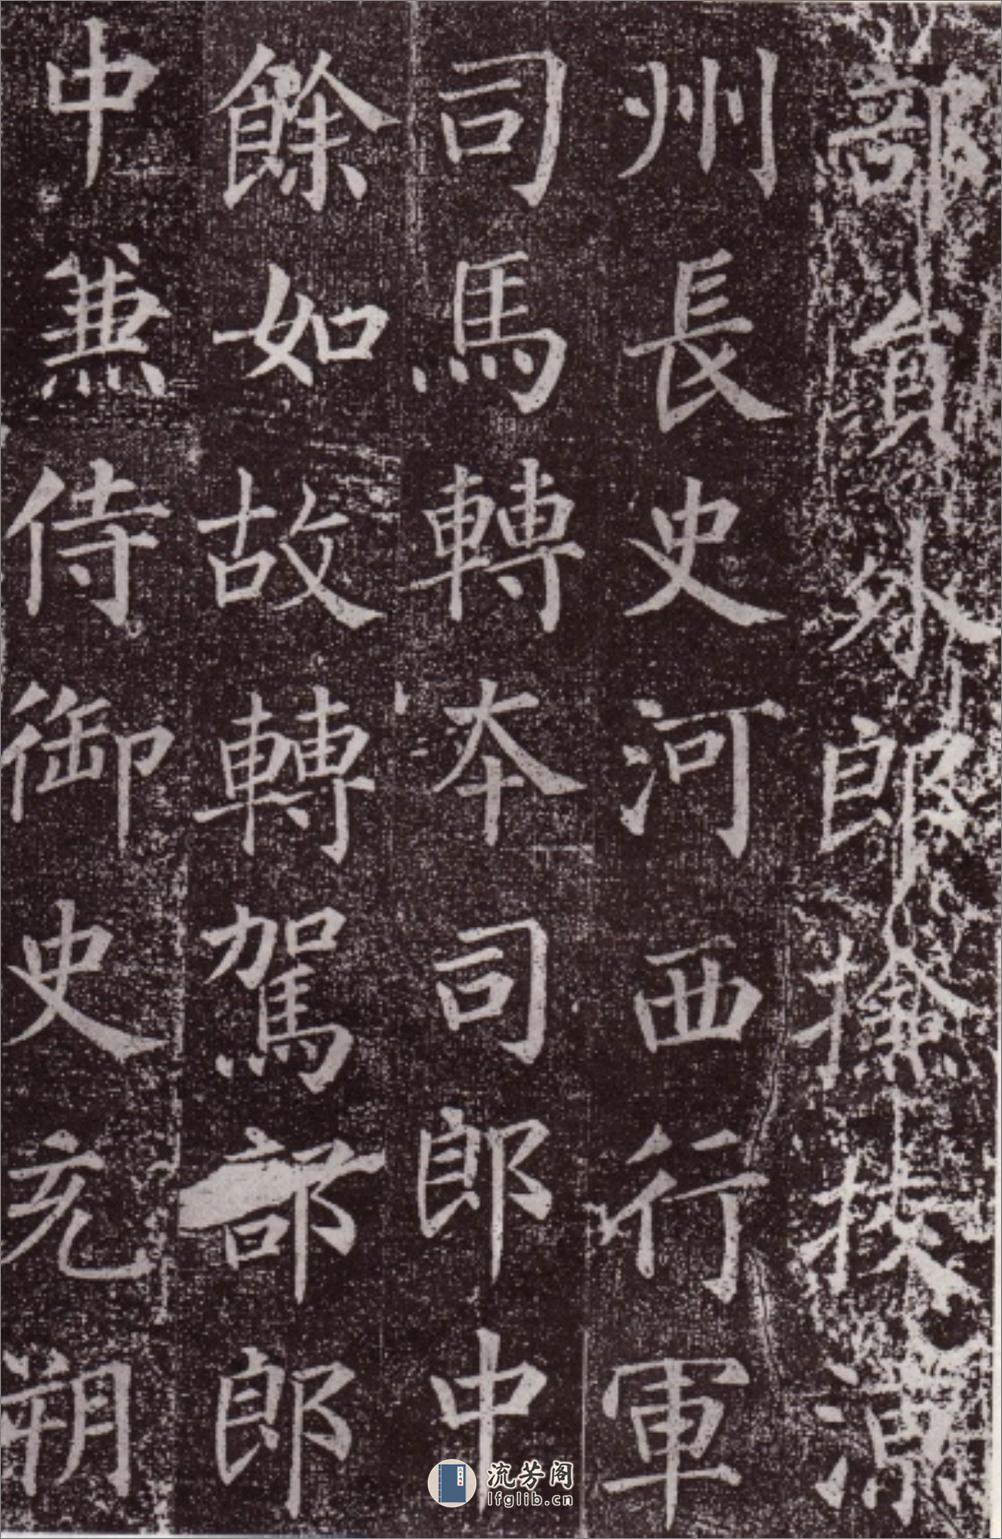 部貟外郎撿挍涼
州長史河西行軍
司馬轉夲司郎中
餘如故轉駕部郎
中兼侍御史充朔
流芳阁
lfglib.cn